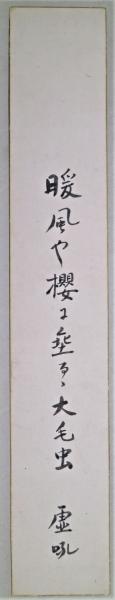 暖風や櫻に垂るゝ大毛虫 虚吼